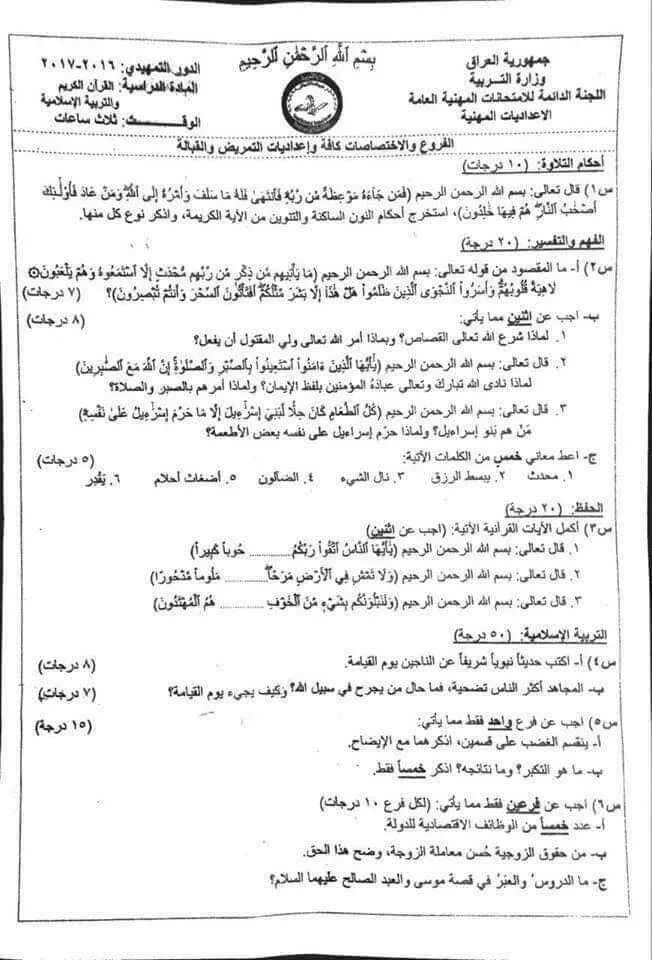 بِسْمِ اللهِ الرَّحْمٰنِ الرَّحِيمِ
جمهورية العراق
وزارة التربية
اللجنة الدائمة للامتحانات المهنية العامة
الاعداديات المهنية
الدور التمهيدي: ٢٠١٦-٢٠١٧
المادة الدراسية: القرآن الكريم
والتربية الإسلامية
الوقت: ثلاث ساعات
الفروع والاختصاصات كافة وإعداديات التمريض والقبالة
أحكام التلاوة: (١٠ درجات)
س١) قال تعالى: بسم الله الرحمن الرحيم (فَمَن جَاءَهُ مَوْعِظَةٌ مِّن رَّبِّهِ فَانتَهَىٰ فَلَهُ مَا سَلَفَ وَأَمْرُهُ إِلَى اللَّهِ وَمَنْ عَادَ فَأُولَٰئِكَ
أَصْحَابُ النَّارِ هُمْ فِيهَا خَالِدُونَ)، استخرج أحكام النون الساكنة والتنوين من الآية الكريمة، واذكر نوع كل منها.
الفهم والتفسير: (٢٠ درجة)
س٢) أ- ما المقصود من قوله تعالى: بسم الله الرحمن الرحيم (مَا يَأْتِيهِم مِّن ذِكْرٍ مِّن رَّبِّهِم مُّحْدَثٍ إِلَّا اسْتَمَعُوهُ وَهُمْ يَلْعَبُونَ ۞
لَاهِيَةً قُلُوبُهُمْ وَأَسَرُّوا النَّجْوَى الَّذِينَ ظَلَمُوا هَلْ هَٰذَا إِلَّا بَشَرٌ مِّثْلُكُمْ أَفَتَأْتُونَ السِّحْرَ وَأَنتُمْ تُبْصِرُونَ)؟ (٧ درجات)
ب- اجب عن اثنين مما يأتي: (٨ درجات)
١. لماذا شرع الله تعالى القصاص؟ وبماذا أمر الله تعالى ولي المقتول أن يفعل؟
٢. قال تعالى: بسم الله الرحمن الرحيم (يَا أَيُّهَا الَّذِينَ ءَامَنُوا اسْتَعِينُوا بِالصَّبْرِ وَالصَّلَوٰةِ إِنَّ اللَّهَ مَعَ الصَّابِرِينَ)
لماذا نادى الله تبارك وتعالى عبادهُ المؤمنين بلفظ الإيمان؟ ولماذا أمرهم بالصبر والصلاة؟
٣. قال تعالى: بسم الله الرحمن الرحيم (كُلُّ الطَّعَامِ كَانَ حِلًّا لِّبَنِي إِسْرَائِيلَ إِلَّا مَا حَرَّمَ إِسْرَائِيلُ عَلَىٰ نَفْسِهِ)
مَن هم بَنو إسراءيل؟ ولماذا حرّم إسراءيل على نفسه بعض الأطعمة؟
ج- اعط معاني خمس من الكلمات الآتية: (٥ درجات)
١. محدث ٢. يبسط الرزق ٣. نال الشيء ٤. الضآلون ٥. أضغاث أحلام ٦. يَقْدِر
الحفظ: (٢٠ درجة)
س٣) أكمل الآيات القرآنية الآتية: (اجب عن اثنين)
١. قال تعالى: بسم الله الرحمن الرحيم (يَا أَيُّهَا النَّاسُ اتَّقُوا رَبَّكُمُ ............ حُوباً كَبِيراً)
٢. قال تعالى: بسم الله الرحمن الرحيم (وَلَا تَمْشِ فِي الْأَرْضِ مَرَحًا ............ مَلُوماً مَّدْحُوراً)
٣. قال تعالى: بسم الله الرحمن الرحيم (وَلَنَبْلُوَنَّكُم بِشَيْءٍ مِّنَ الْخَوْفِ ............ هُمُ الْمُهْتَدُونَ)
التربية الإسلامية: (٥٠ درجة)
س٤) أ- اكتب حديثاً نبوياً شريفاً عن الناجين يوم القيامة. (٨ درجات)
ب- المجاهد أكثر الناس تضحية، فما حال من يجرح في سبيل الله؟ وَكيف يجيء يوم القيامة؟ (٧ درجات)
س٥) اجب عن فرع واحد فقط مما يأتي: (١٥ درجة)
أ- ينقسم الغضب على قسمين، اذكرهما مع الإيضاح.
ب- ما هو التكبر؟ وما نتائجه؟ اذكر خمساً فقط.
س٦) اجب عن فرعين فقط مما يأتي: (لكل فرع ١٠ درجات)
أ- عدد خمساً من الوظائف الاقتصادية للدولة.
ب- من حقوق الزوجية حُسن معاملة الزوجة، وضح هذا الحق.
ج- ما الدروسُ والعِبَرُ في قصة موسى والعبد الصالح عليهما السلام؟